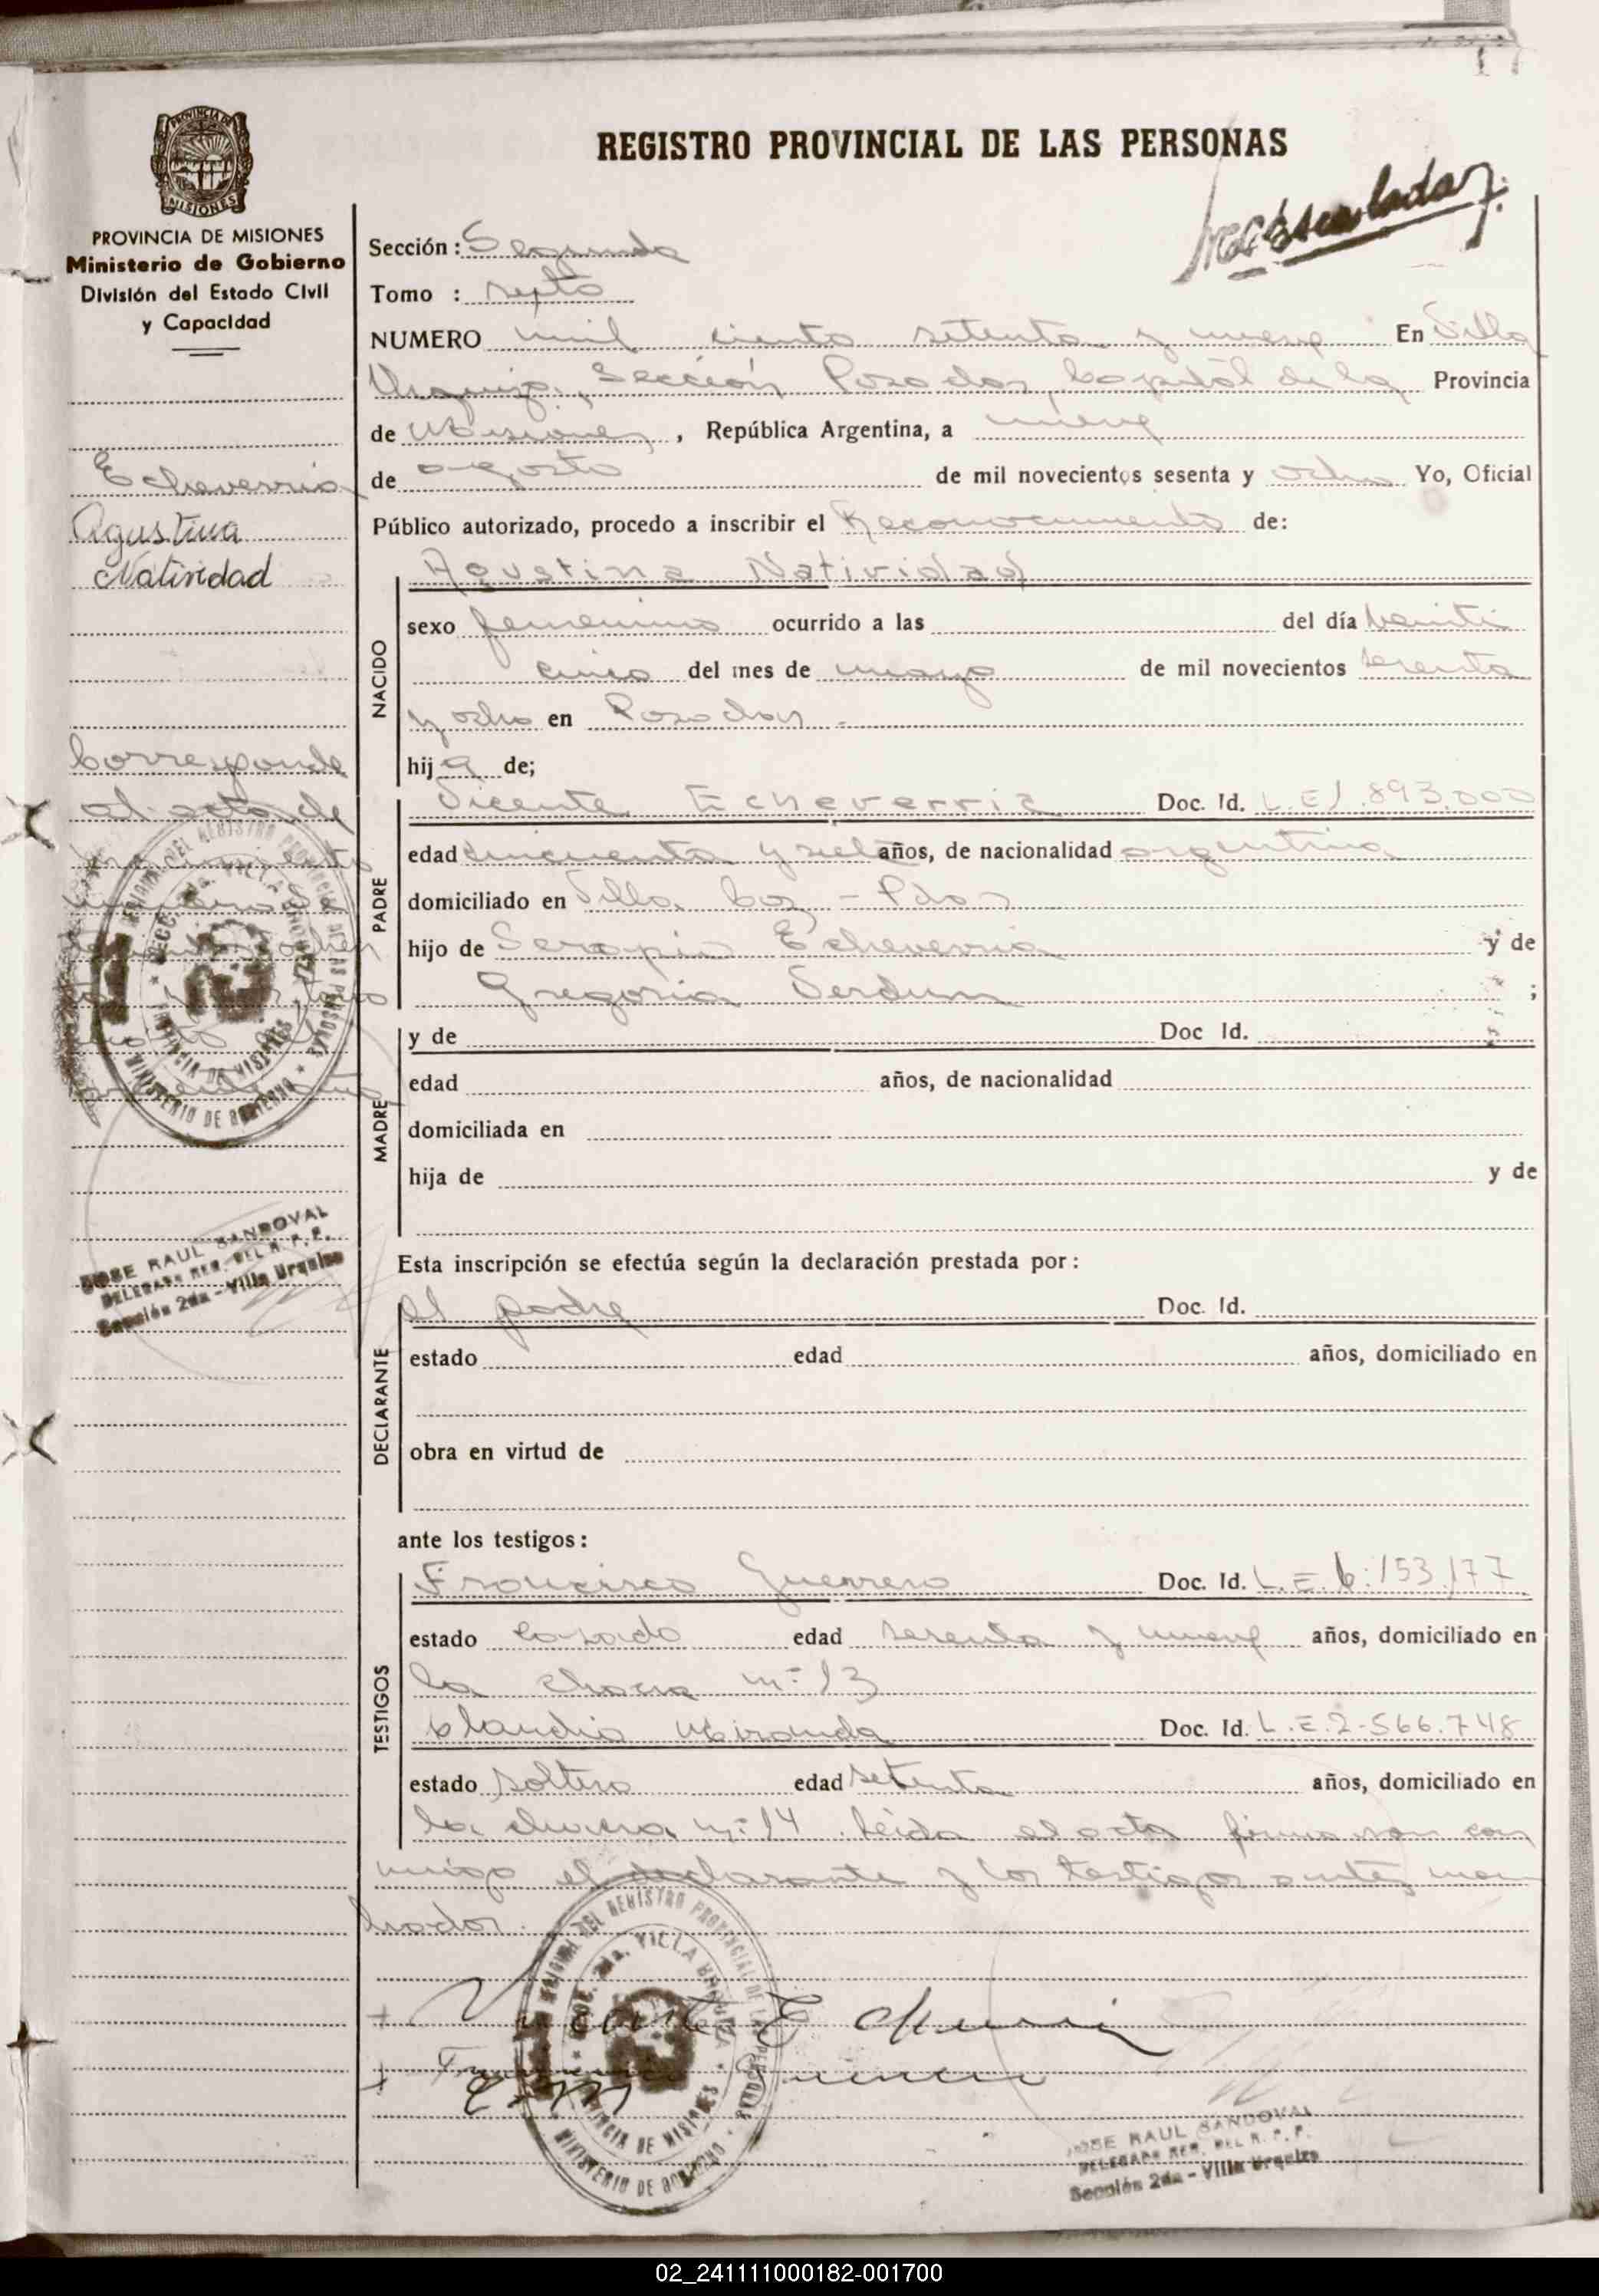 REGISTRO PROVINCIAL DE LAS PERSONAS
PROVINCIA DE MISIONES
Ministerio de Gobierno
División del Estado Civil
y Capacidad
Sección: Segunda
Tomo : sexto
NUMERO mil ciento setenta y nueve En Villa
Urquiza, Sección Posadas, Capital de la Provincia
de Misiones, República Argentina, a nueve
de agosto de mil novecientos sesenta y ocho Yo, Oficial
Público autorizado, procedo a inscribir el Reconocimiento de:
Echeverria
Agustina
Natividad
NACIDO
Agustina Natividad
sexo femenino ocurrido a las del día veinti
cinco del mes de mayo de mil novecientos sesenta
y ocho en Posadas.-
hija de;
Corresponde
al acta de
PADRE
Vicente Echeverria Doc. Id. L.E 1.893.000
edad cincuenta y siete años, de nacionalidad argentina
domiciliado en Villa Coz - Pdas
hijo de Serapio Echeverria y de
Gregoria Verdun ;
DELEGACION DEL REGISTRO PROVINCIAL DE LAS PERSONAS
SECC. 2da. VILLA URQUIZA
PROVINCIA DE MISIONES
MINISTERIO DE GOBIERNO
MADRE
y de Doc Id.
edad años, de nacionalidad
domiciliada en
hija de y de
JOSE RAUL SANDOVAL
DELEGADO REG. DEL R. P. P.
Sección 2da - Villa Urquiza
Esta inscripción se efectúa según la declaración prestada por:
DECLARANTE
el padre Doc. Id.
estado edad años, domiciliado en
obra en virtud de
ante los testigos:
TESTIGOS
Francisco Guerrero Doc. Id. L.E. 6.153.177
estado casado edad sesenta y nueve años, domiciliado en
la chacra nº 13
Claudio Miranda Doc. Id. L.E.2-566.748
estado soltero edad setenta años, domiciliado en
la chacra nº 14. Leida el acta firmaron con
migo el declarante y los testigos antes men
Vicente Echeverria
Francisco Guerrero
DELEGACION DEL REGISTRO PROVINCIAL DE LAS PERSONAS
SECC. 2da. VILLA URQUIZA
PROVINCIA DE MISIONES
MINISTERIO DE GOBIERNO
JOSE RAUL SANDOVAL
DELEGADO REG. DEL R. P. P.
Sección 2da - Villa Urquiza
02_241111000182-001700